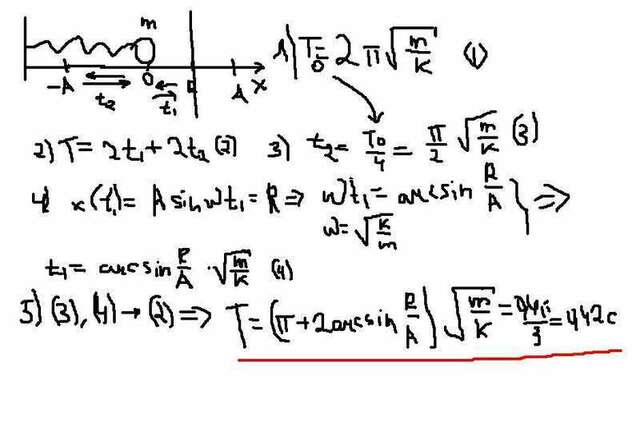 m
-A 0 ℓ A x
t₂ t₁
1) T₀=2π√(m/k) (1)
2) T=2t₁+2t₂ (2) 3) t₂=T₀/4=π/2 √(m/k) (3)
4) x(t₁)=A sin ωt₁=ℓ ⇒ ωt₁=arcsin ℓ/A } ⇒
ω=√(k/m)
t₁=arcsin ℓ/A · √(m/k) (4)
5) (3), (4) → (2) ⇒ T=(π+2arcsin ℓ/A) √(m/k) = 0,4π/3 = 0,42c